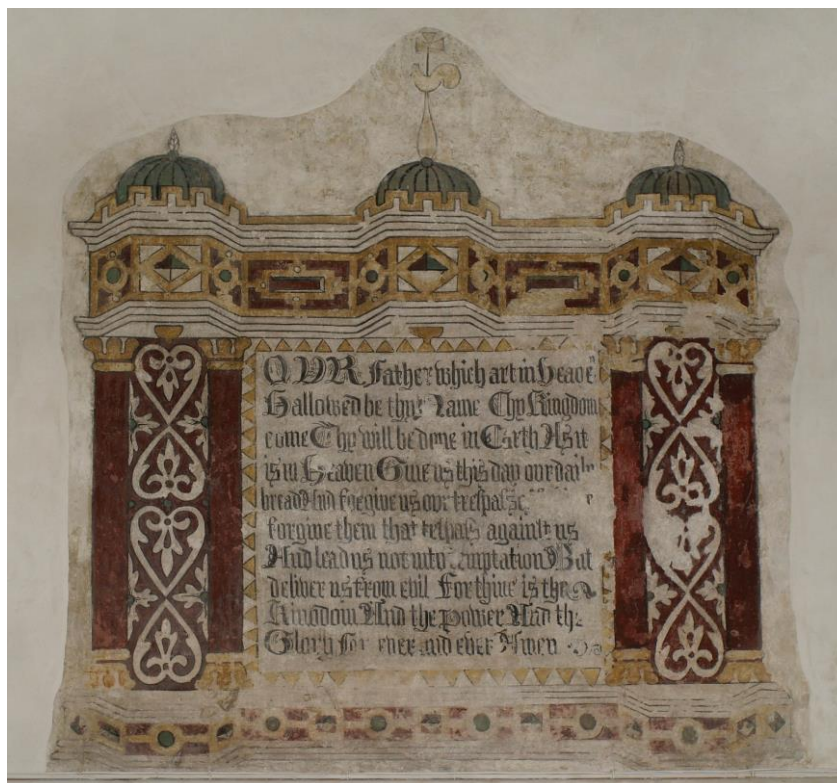 OVR Father which art in Heaoē
Hallowed be thy Name Thy Kingdom
come Thy will be done in Earth As it
is in Heaven Giue us this day our daily
bread And forgive us our trespasse
forgiue them that trespass against us
And lead us not into temptation But
deliver us from evil For thine is the
Kingdom And the power And the
Glory for ever and ever Amen